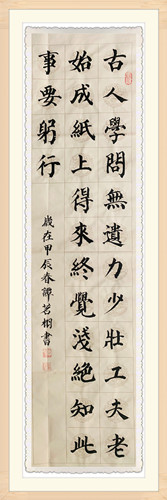 古人學問無遺力少壯工夫老
始成紙上得來終覺淺絕知此
事要躬行
歲在甲辰春譚茗櫚書